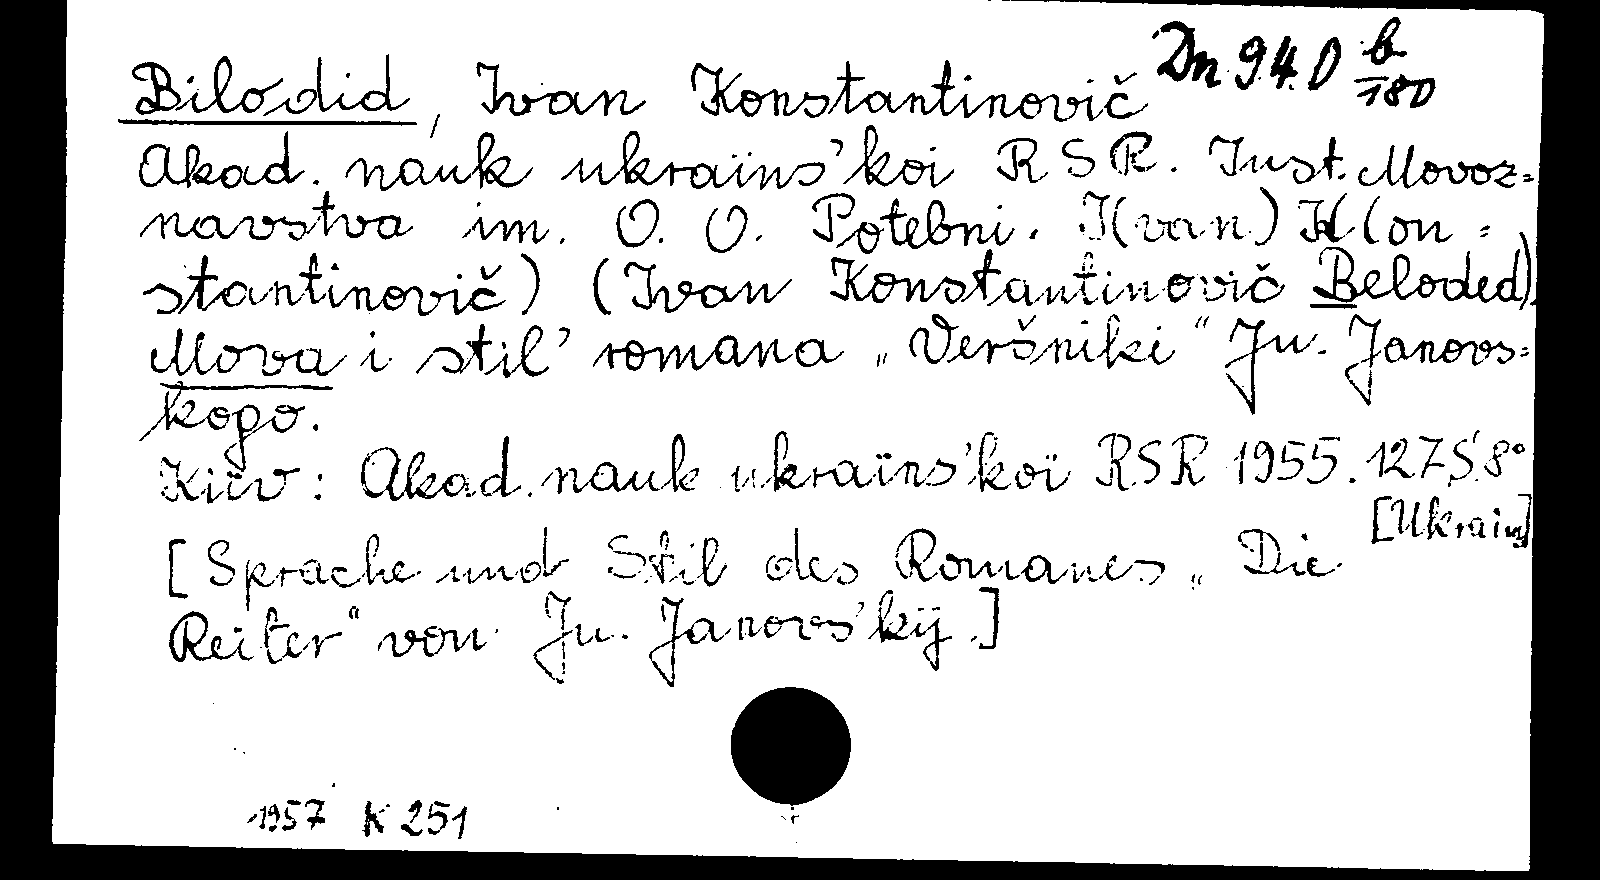 Dn 94.0 b/180
Bilodid, Ivan Konstantinovič
Akad. nauk ukraïns'koi RSR. Inst. Movoz=
navstva im. O. O. Potebni. I(van) K(on=
stantinovič) (Ivan Konstantinovič Beloded).
Mova i stil' romana „Veršniki“ Ju. Janovs=
kogo.
Kiïv: Akad. nauk ukraïns'koï RSR 1955. 127 S. 8°
[Ukrain]
[Sprache und Stil des Romanes „Die
Reiter“ von Ju. Janovs'kÿ.]
1957 K 251